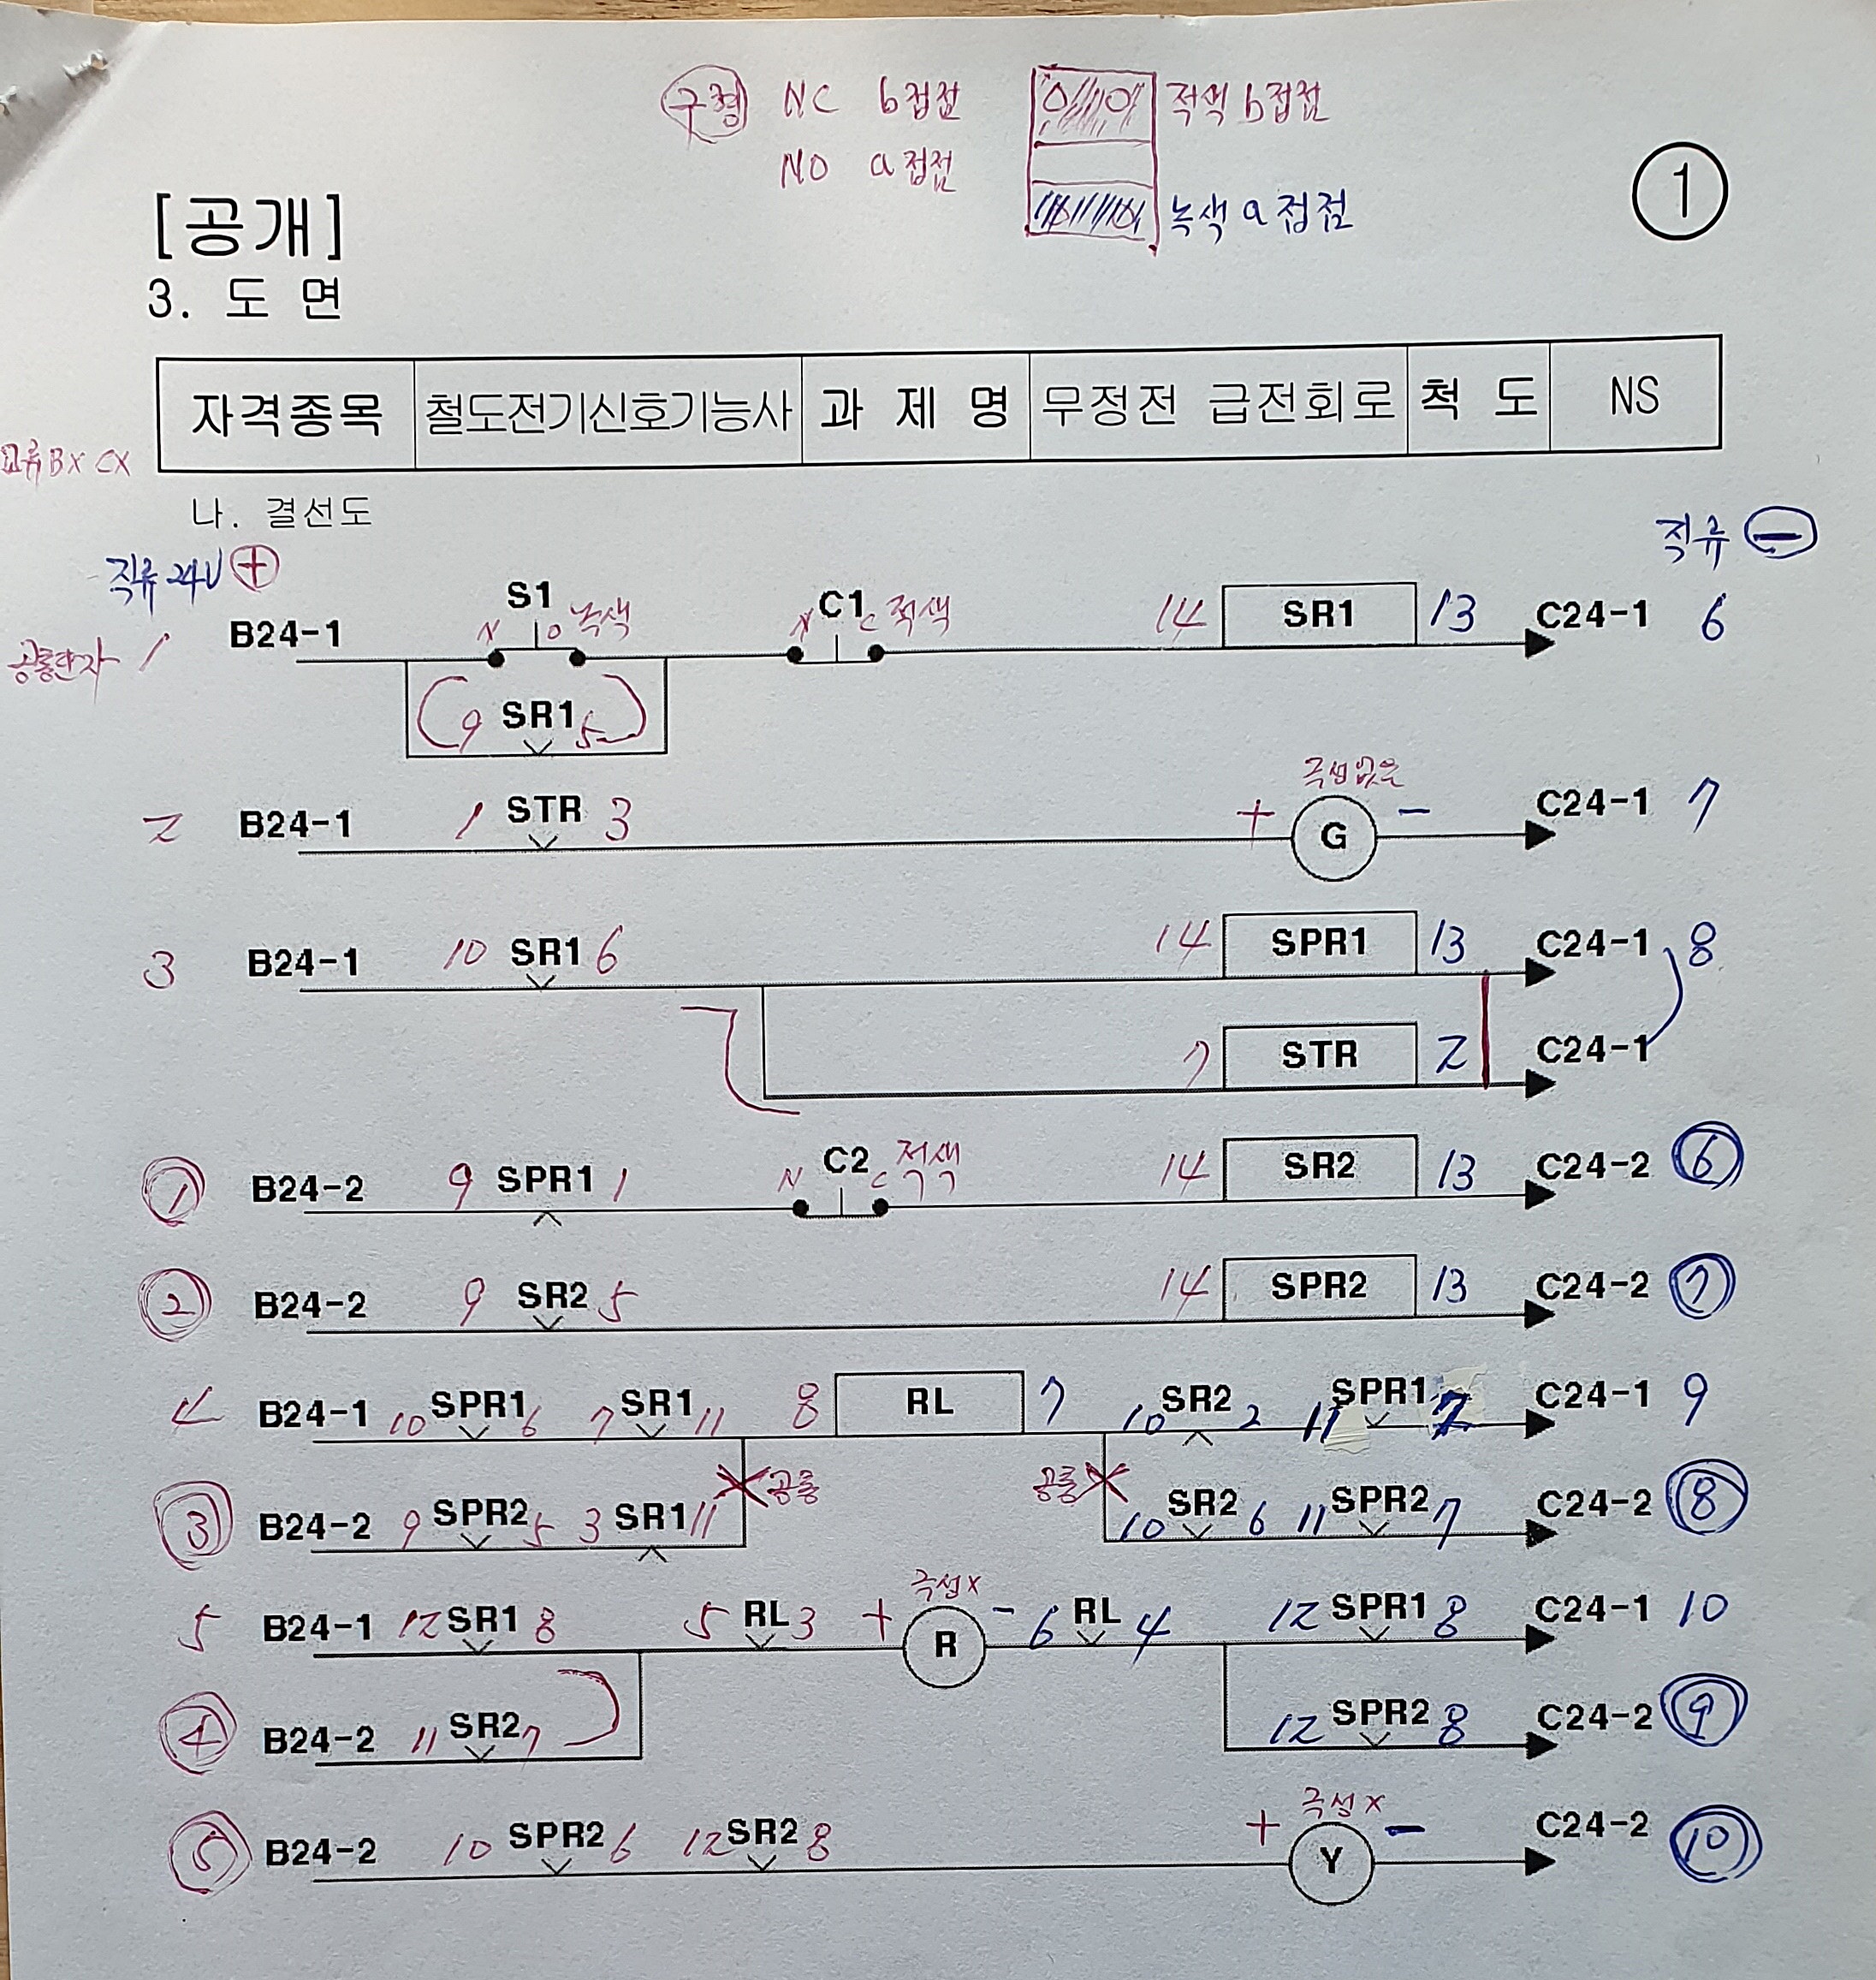 구형 NC b접점 적색 b접점
NO a접점 녹색 a접점
①
[공개]
3. 도 면
자격종목 철도전기신호기능사 과 제 명 무정전 급전회로 척 도 NS
교류 BX CX
나. 결선도
직류 24V + 직류 −
공통단자 1 B24-1 S1 N O 녹색 N C1 C 적색 14 SR1 13 C24-1 6
9 SR1 5
극성없음
2 B24-1 1 STR 3 + G − C24-1 7
3 B24-1 10 SR1 6 14 SPR1 13 C24-1 8
7 STR 2 C24-1
① B24-2 9 SPR1 1 N C2 C 적색 14 SR2 13 C24-2 ⑥
② B24-2 9 SR2 5 14 SPR2 13 C24-2 ⑦
4 B24-1 10 SPR1 6 7 SR1 11 8 RL 7 10 SR2 2 11 SPR1 7 C24-1 9
공통 공통
③ B24-2 9 SPR2 5 3 SR1 11 10 SR2 6 11 SPR2 7 C24-2 ⑧
극성x
5 B24-1 12 SR1 8 5 RL 3 + R − 6 RL 4 12 SPR1 8 C24-1 10
④ B24-2 11 SR2 7 12 SPR2 8 C24-2 ⑨
극성x
⑤ B24-2 10 SPR2 6 12 SR2 8 + Y − C24-2 ⑩